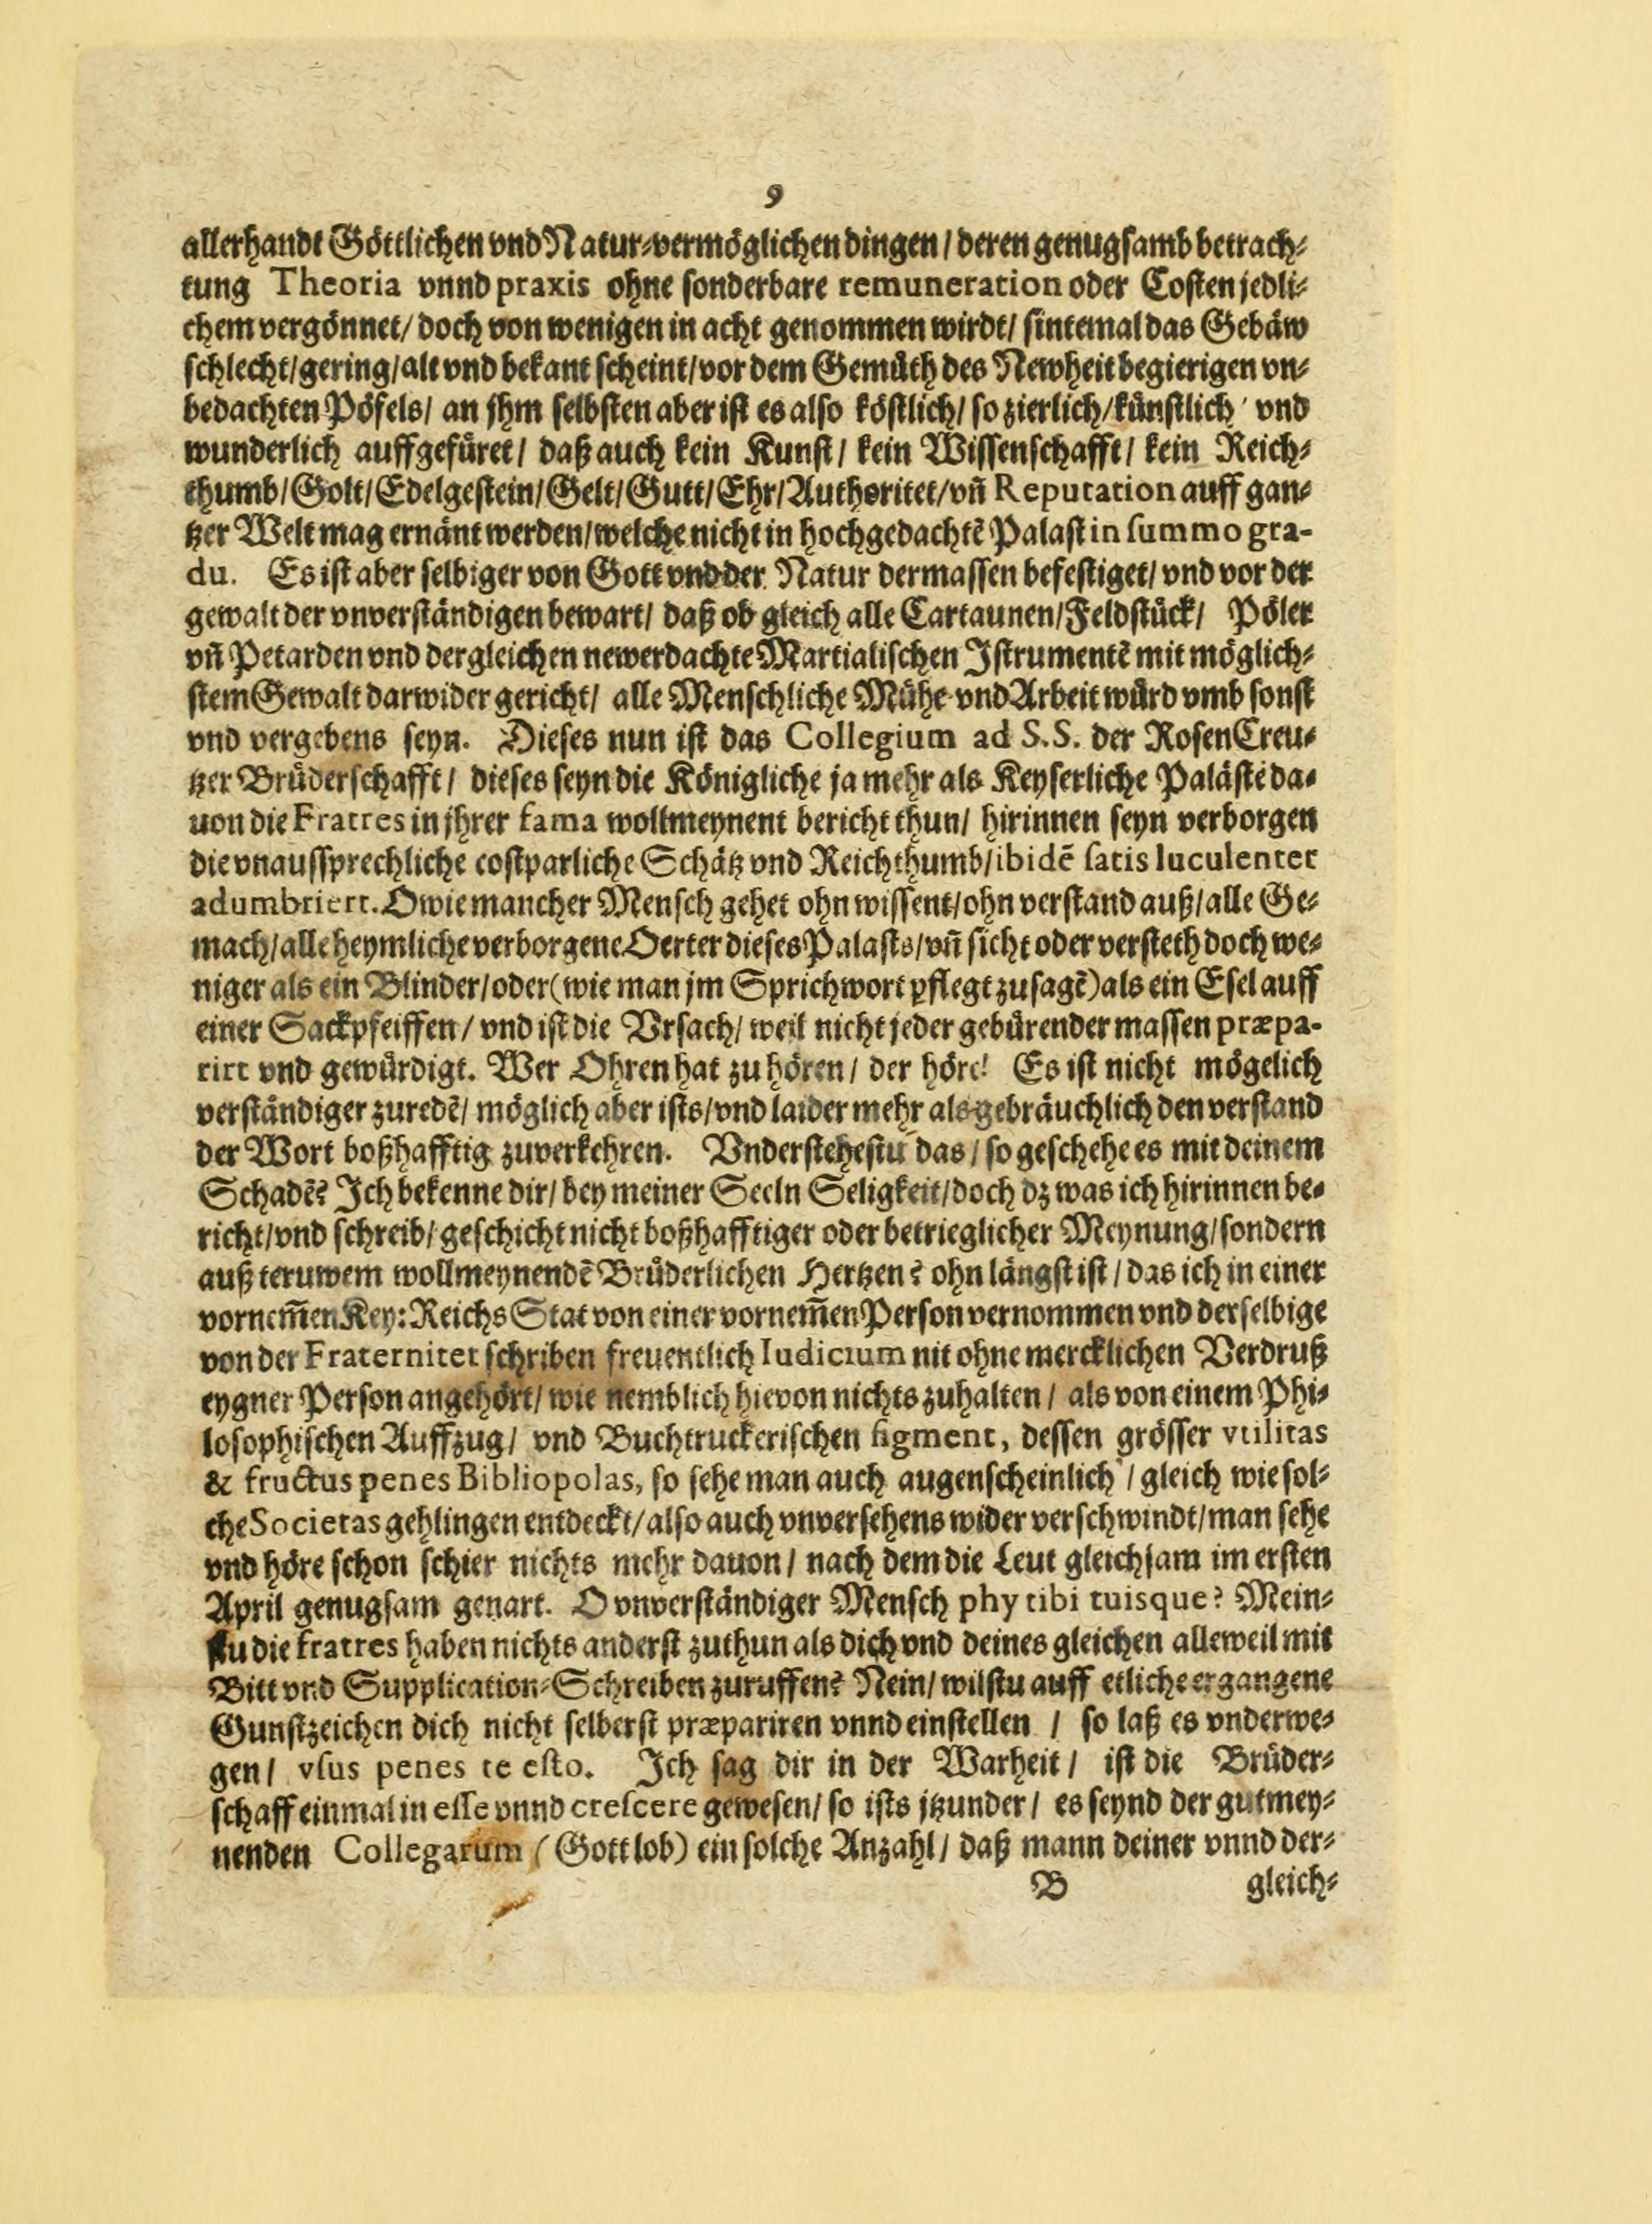 9
allerhandt Göttlichen vnd Natur-vermöglichen dingen / deren genugsamb betrach-
tung Theoria vnnd praxis ohne sonderbare remuneration oder Costen jedli-
chem vergönnet / doch von wenigen in acht genommen wirdt / sintemal das Gebäw
schlecht / gering / alt vnd bekant scheint / vor dem Gemüth des Newheit begierigen vn-
bedachten Pöfels / an jhm selbsten aber ist es also köstlich / so zierlich / künstlich / vnd
wunderlich auffgefüret / daß auch kein Kunst / kein Wissenschafft / kein Reich-
thumb / Golt / Edelgestein / Gelt / Gutt / Ehr / Authoritet / vñ Reputation auff gan-
tzer Welt mag ernänt werden / welche nicht in hochgedachtē Palast in summo gra-
du. Es ist aber selbiger von Gott vnd der Natur dermassen befestiget / vnd vor der
gewalt der vnverständigen bewart / daß ob gleich alle Cartaunen / Feldstück / Pöler
vñ Petarden vnd dergleichen newerdachte Martialischen Jstrumentē mit möglich-
stem Gewalt darwider gericht / alle Menschliche Mühe vnd Arbeit würd vmb sonst
vnd vergebens seyn. Dieses nun ist das Collegium ad S.S. der RosenCreu-
tzer Brüderschafft / dieses seyn die Königliche ja mehr als Keyserliche Paläste da-
uon die Fratres in jhrer fama wollmeynent bericht thun / hirinnen seyn verborgen
die vnaussprechliche costparliche Schätz vnd Reichthumb / ibidē satis luculenter
adumbriert. O wie mancher Mensch gehet ohn wissent / ohn verstand auß / alle Ge-
mach / alle heymliche verborgene Oerter dieses Palasts / vñ sicht oder versteth doch we-
niger als ein Blinder / oder (wie man jm Sprichwort pflegt zusagē) als ein Esel auff
einer Sackpfeiffen / vnd ist die Vrsach / weil nicht jeder gebürender massen præpa-
rirt vnd gewürdigt. Wer Ohren hat zu hören / der höre! Es ist nicht mögelich
verständiger zuredē / möglich aber ists / vnd laider mehr als gebräuchlich den verstand
der Wort boßhafftig zuverkehren. Vnderstehestu das / so geschehe es mit deinem
Schadē? Jch bekenne dir / bey meiner Seeln Seligkeit / doch dz was ich hirinnen be-
richt / vnd schreib / geschicht nicht boßhafftiger oder betrieglicher Meynung / sondern
auß teruwem wollmeynendē Brüderlichen Hertzen? ohn längst ist / das ich in einer
vornem̃en Key: Reichs Stat von einer vornem̃en Person vernommen vnd derselbige
von der Fraternitet schriben freuentlich Iudicium nit ohne mercklichen Verdruß
eygner Person angehört / wie nemblich hievon nichts zuhalten / als von einem Phi-
losophischen Auffzug / vnd Buchtruckerischen figment, dessen grösser vtilitas
& fructus penes Bibliopolas, so sehe man auch augenscheinlich / gleich wie sol-
che Societas gehlingen entdeckt / also auch vnversehens wider verschwindt / man sehe
vnd höre schon schier nichts mehr dauon / nach dem die Leut gleichsam im ersten
April genugsam genart. O vnverständiger Mensch phy tibi tuisque? Mein-
stu die fratres haben nichts anderst zuthun als dich vnd deines gleichen alleweil mit
Bitt vnd Supplication-Schreiben zuruffen? Nein / wilstu auff etliche ergangene
Gunstzeichen dich nicht selberst præpariren vnnd einstellen / so laß es vnderwe-
gen / vsus penes te esto. Jch sag dir in der Warheit / ist die Brüder-
schaff einmal in esse vnnd crescere gewesen / so ists jtzunder / es seynd der gutmey-
nenden Collegarum (Gott lob) ein solche Anzahl / daß mann deiner vnnd der-
B gleich-